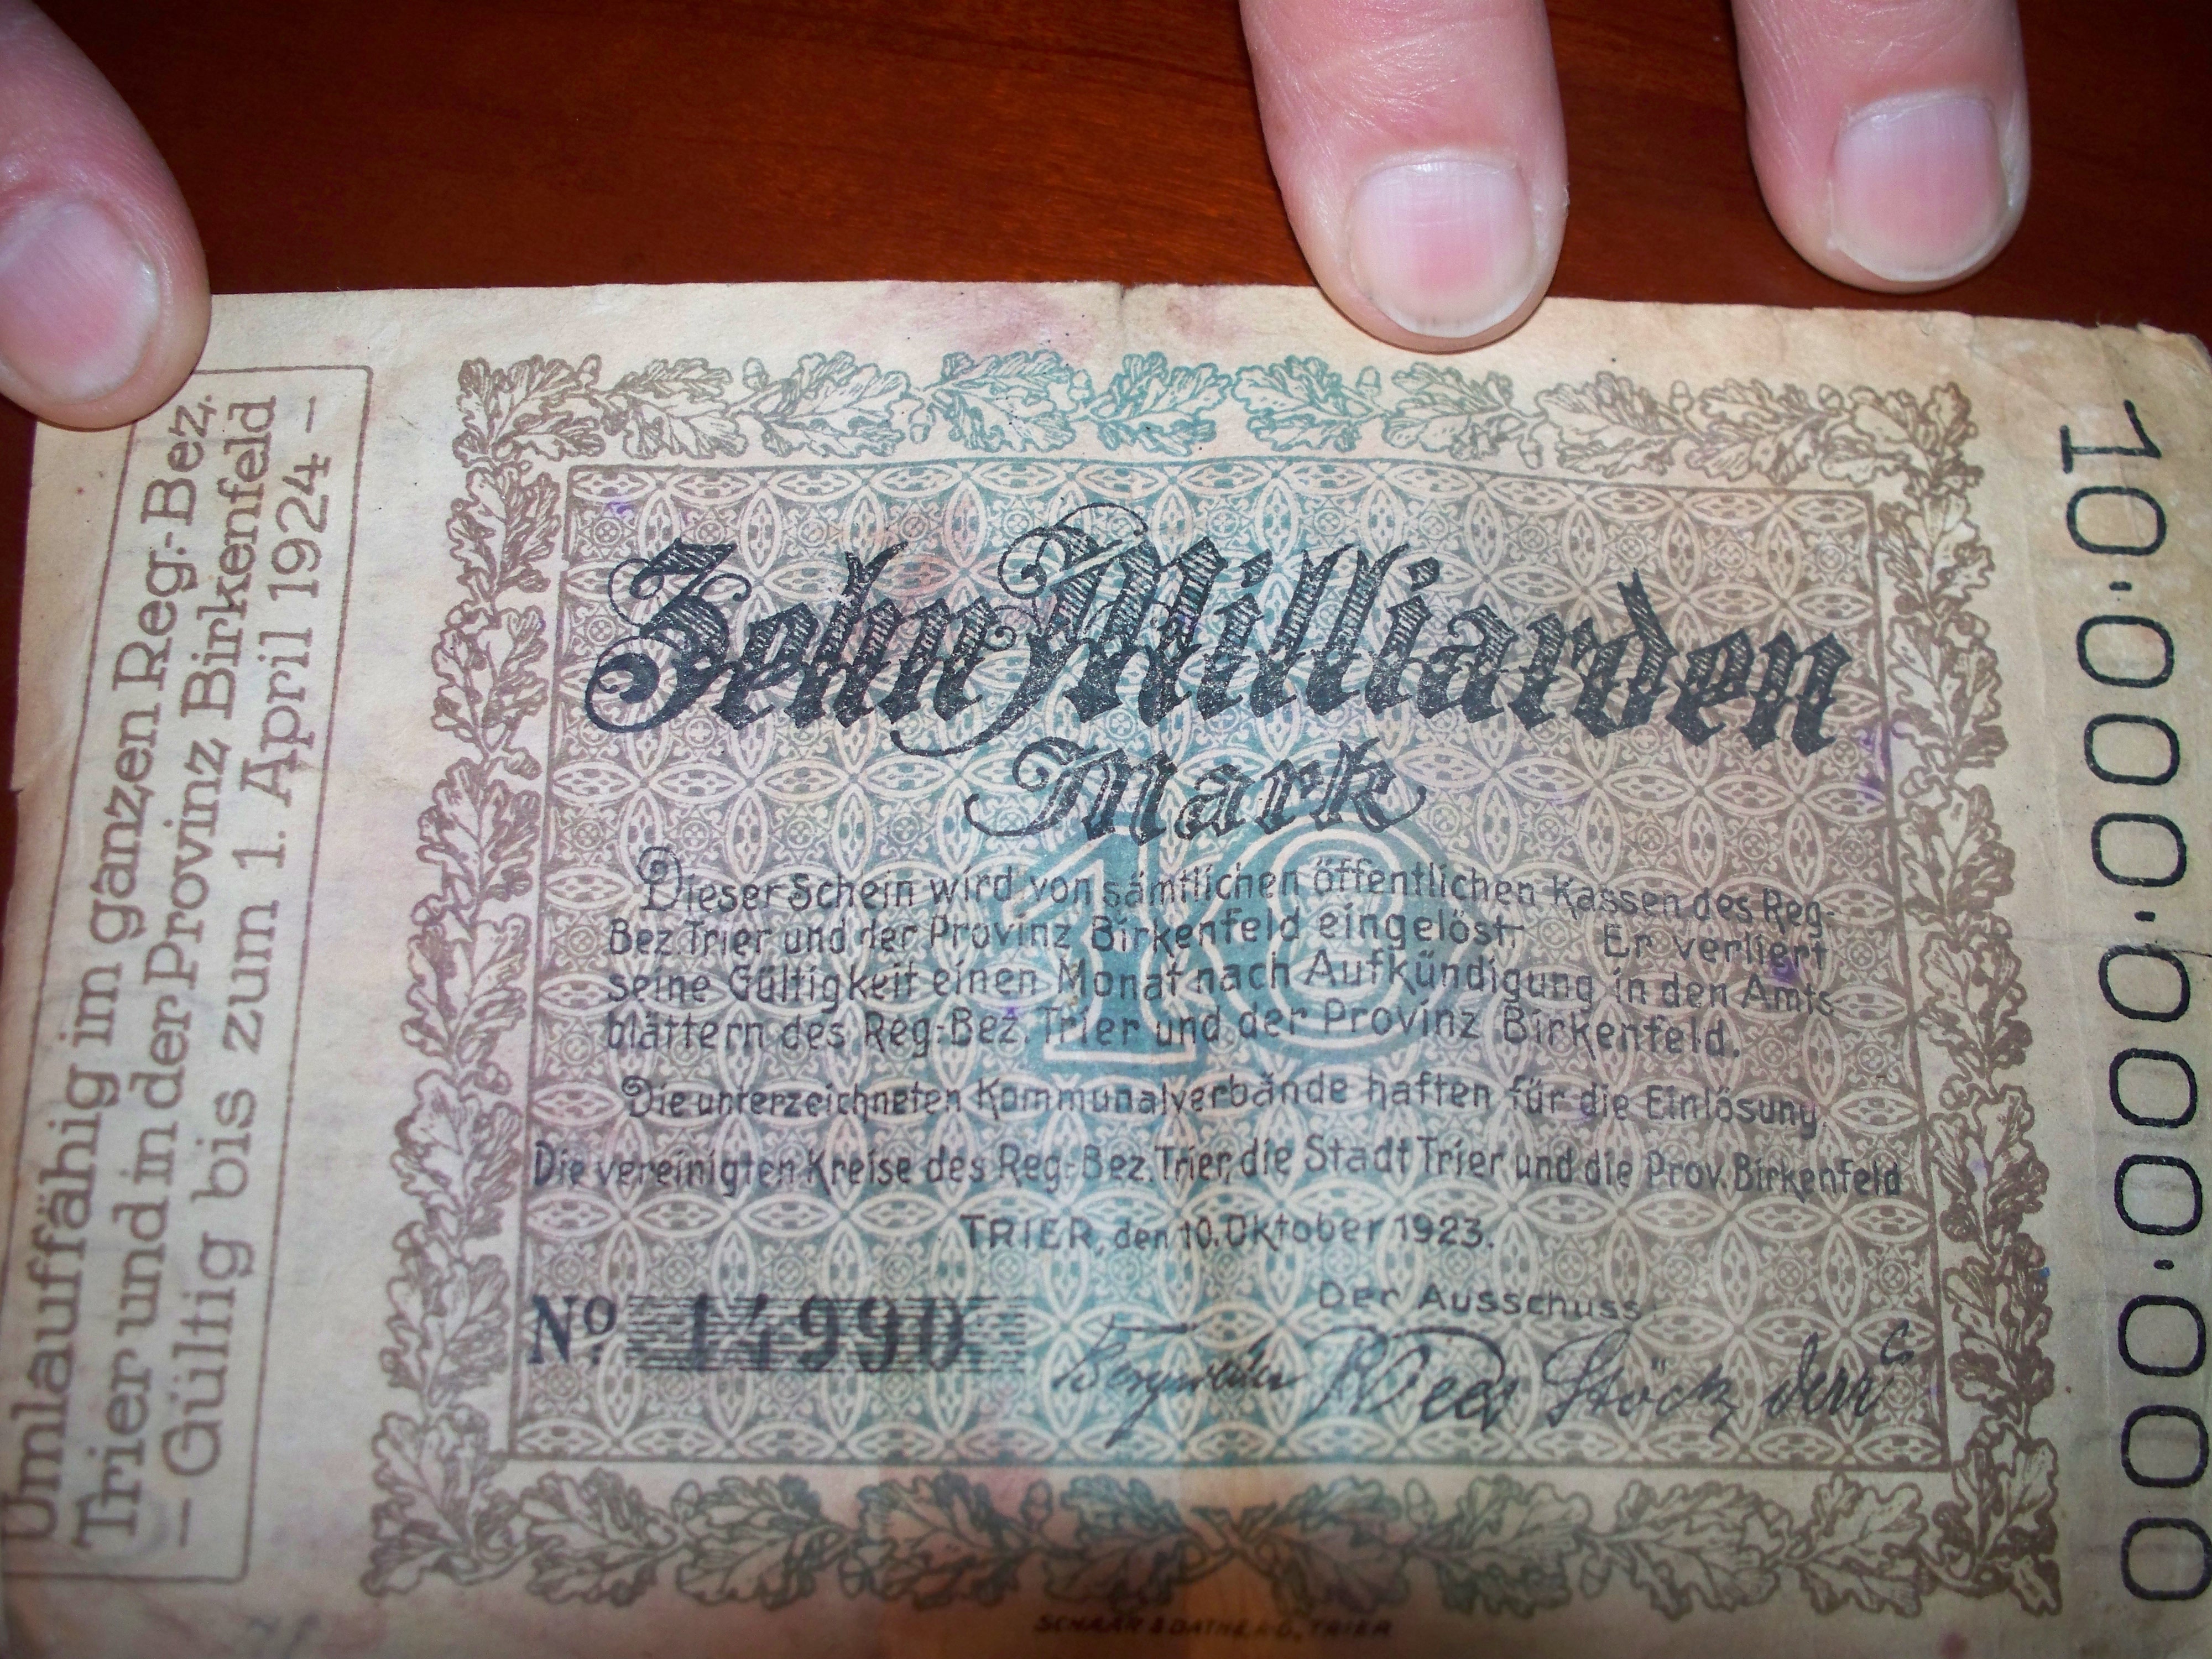 Umlauffähig im ganzen Reg.-Bez.
Trier und in der Provinz Birkenfeld
– Gültig bis zum 1. April 1924 –
Zehn Milliarden
Mark
10
Dieser Schein wird von sämtlichen öffentlichen Kassen des Reg-
Bez. Trier und der Provinz Birkenfeld eingelöst. Er verliert
seine Gültigkeit einen Monat nach Aufkündigung in den Amts
blättern des Reg-Bez. Trier und der Provinz Birkenfeld.
Die unterzeichneten Kommunalverbände haften für die Einlösung.
Die vereinigten Kreise des Reg-Bez. Trier, die Stadt Trier und die Prov. Birkenfeld
TRIER, den 10. Oktober 1923.
Der Ausschuss
No. 14990
SCHAAR & DATHE A.G., TRIER
10.000.000.000